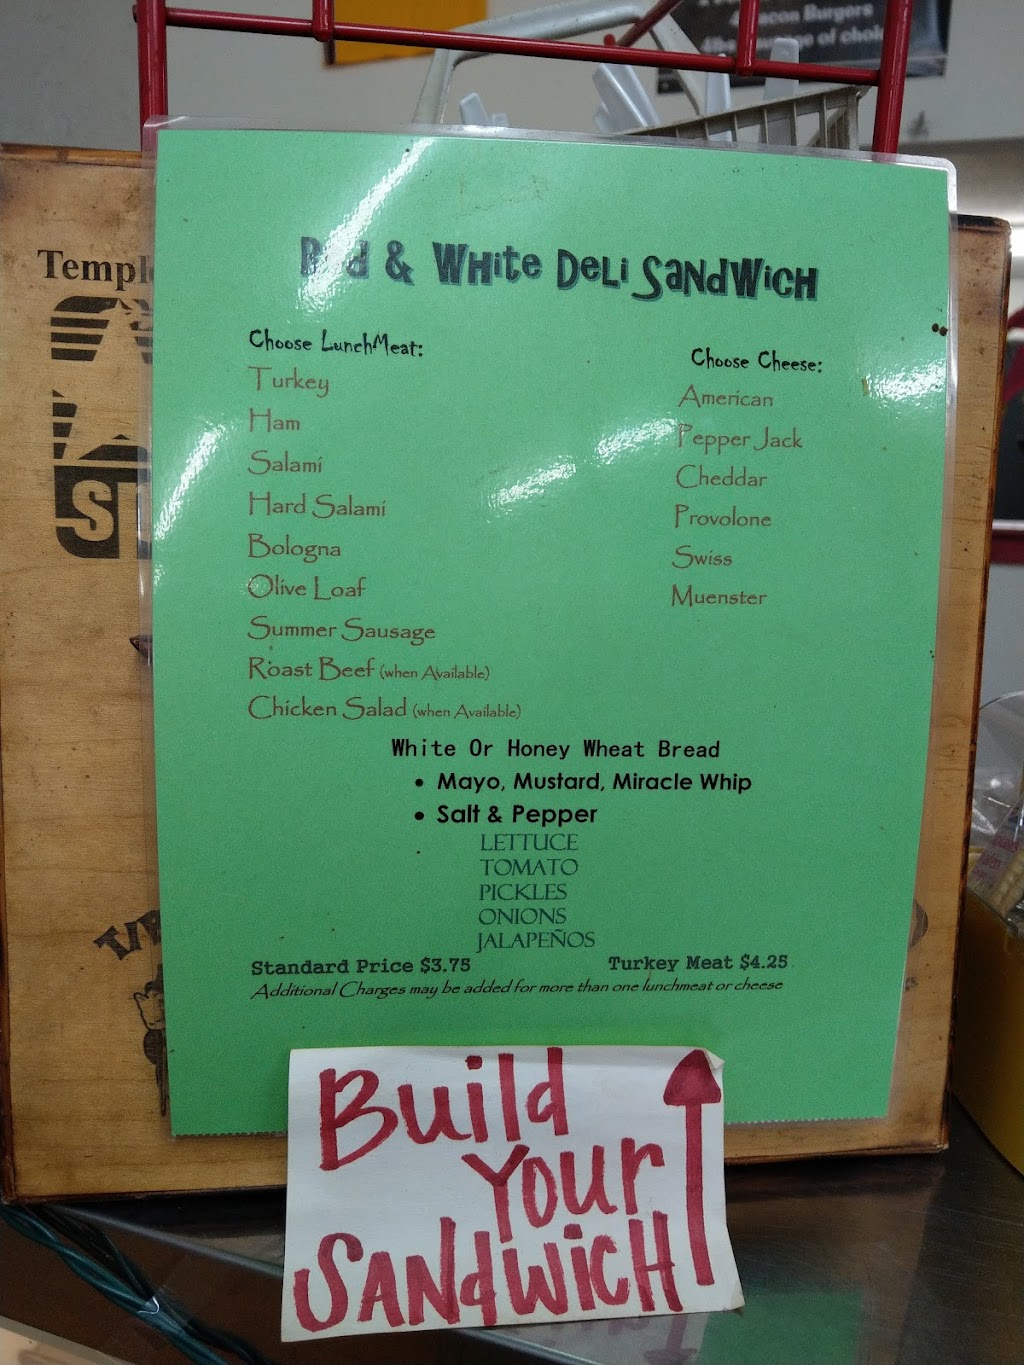 Bacon Burgers
of choi
Temple
Red & White Deli Sandwich
Choose LunchMeat:
Turkey
Ham
Salami
Hard Salami
Bologna
Olive Loaf
Summer Sausage
Roast Beef (when Available)
Chicken Salad (when Available)
Choose Cheese:
American
Pepper Jack
Cheddar
Provolone
Swiss
Muenster
White Or Honey Wheat Bread
• Mayo, Mustard, Miracle Whip
• Salt & Pepper
LETTUCE
TOMATO
PICKLES
ONIONS
JALAPEÑOS
Standard Price $3.75
Turkey Meat $4.25
Additional Charges may be added for more than one lunchmeat or cheese
Build
Your
SANdwicH